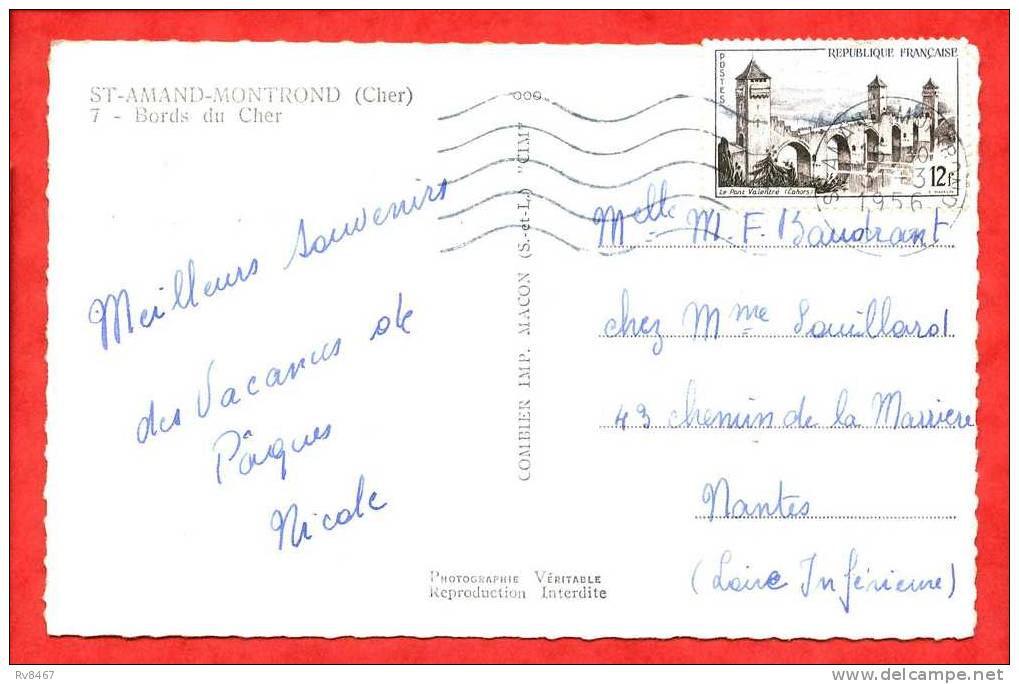 ST-AMAND-MONTROND (Cher)
7 - Bords du Cher
Meilleurs souvenirs
des Vacances de
Pâques
Nicole
COMBIER IMP. MACON (S.-et-L.) "CIM"
PHOTOGRAPHIE VÉRITABLE
Reproduction Interdite
REPUBLIQUE FRANÇAISE
POSTES
Le Pont Valentré (Cahors)
12f
1956
Melle M. F. Baudrant
chez Mme Souillard
43 chemin de la Marrière
Nantes
(Loire Inférieure)
Rv8467
www.delcampe.net